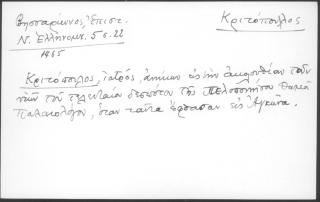 Βησσαρίωνος Ἐπιστ.
Κριτόπουλος
Ν. Ἑλληνομν. 5 σ. 22
1465
Κριτόπουλος, ἰατρός, ἀνήκων εἰς τὴν ἀκολουθίαν τῶν
τοῦ τελευταίου δεσπότου τῆς Πελοποννήσου Θωμᾶ
Παλαιολόγου, ὅταν ταῦτα ἔφθασαν εἰς Ἀγκῶνα.